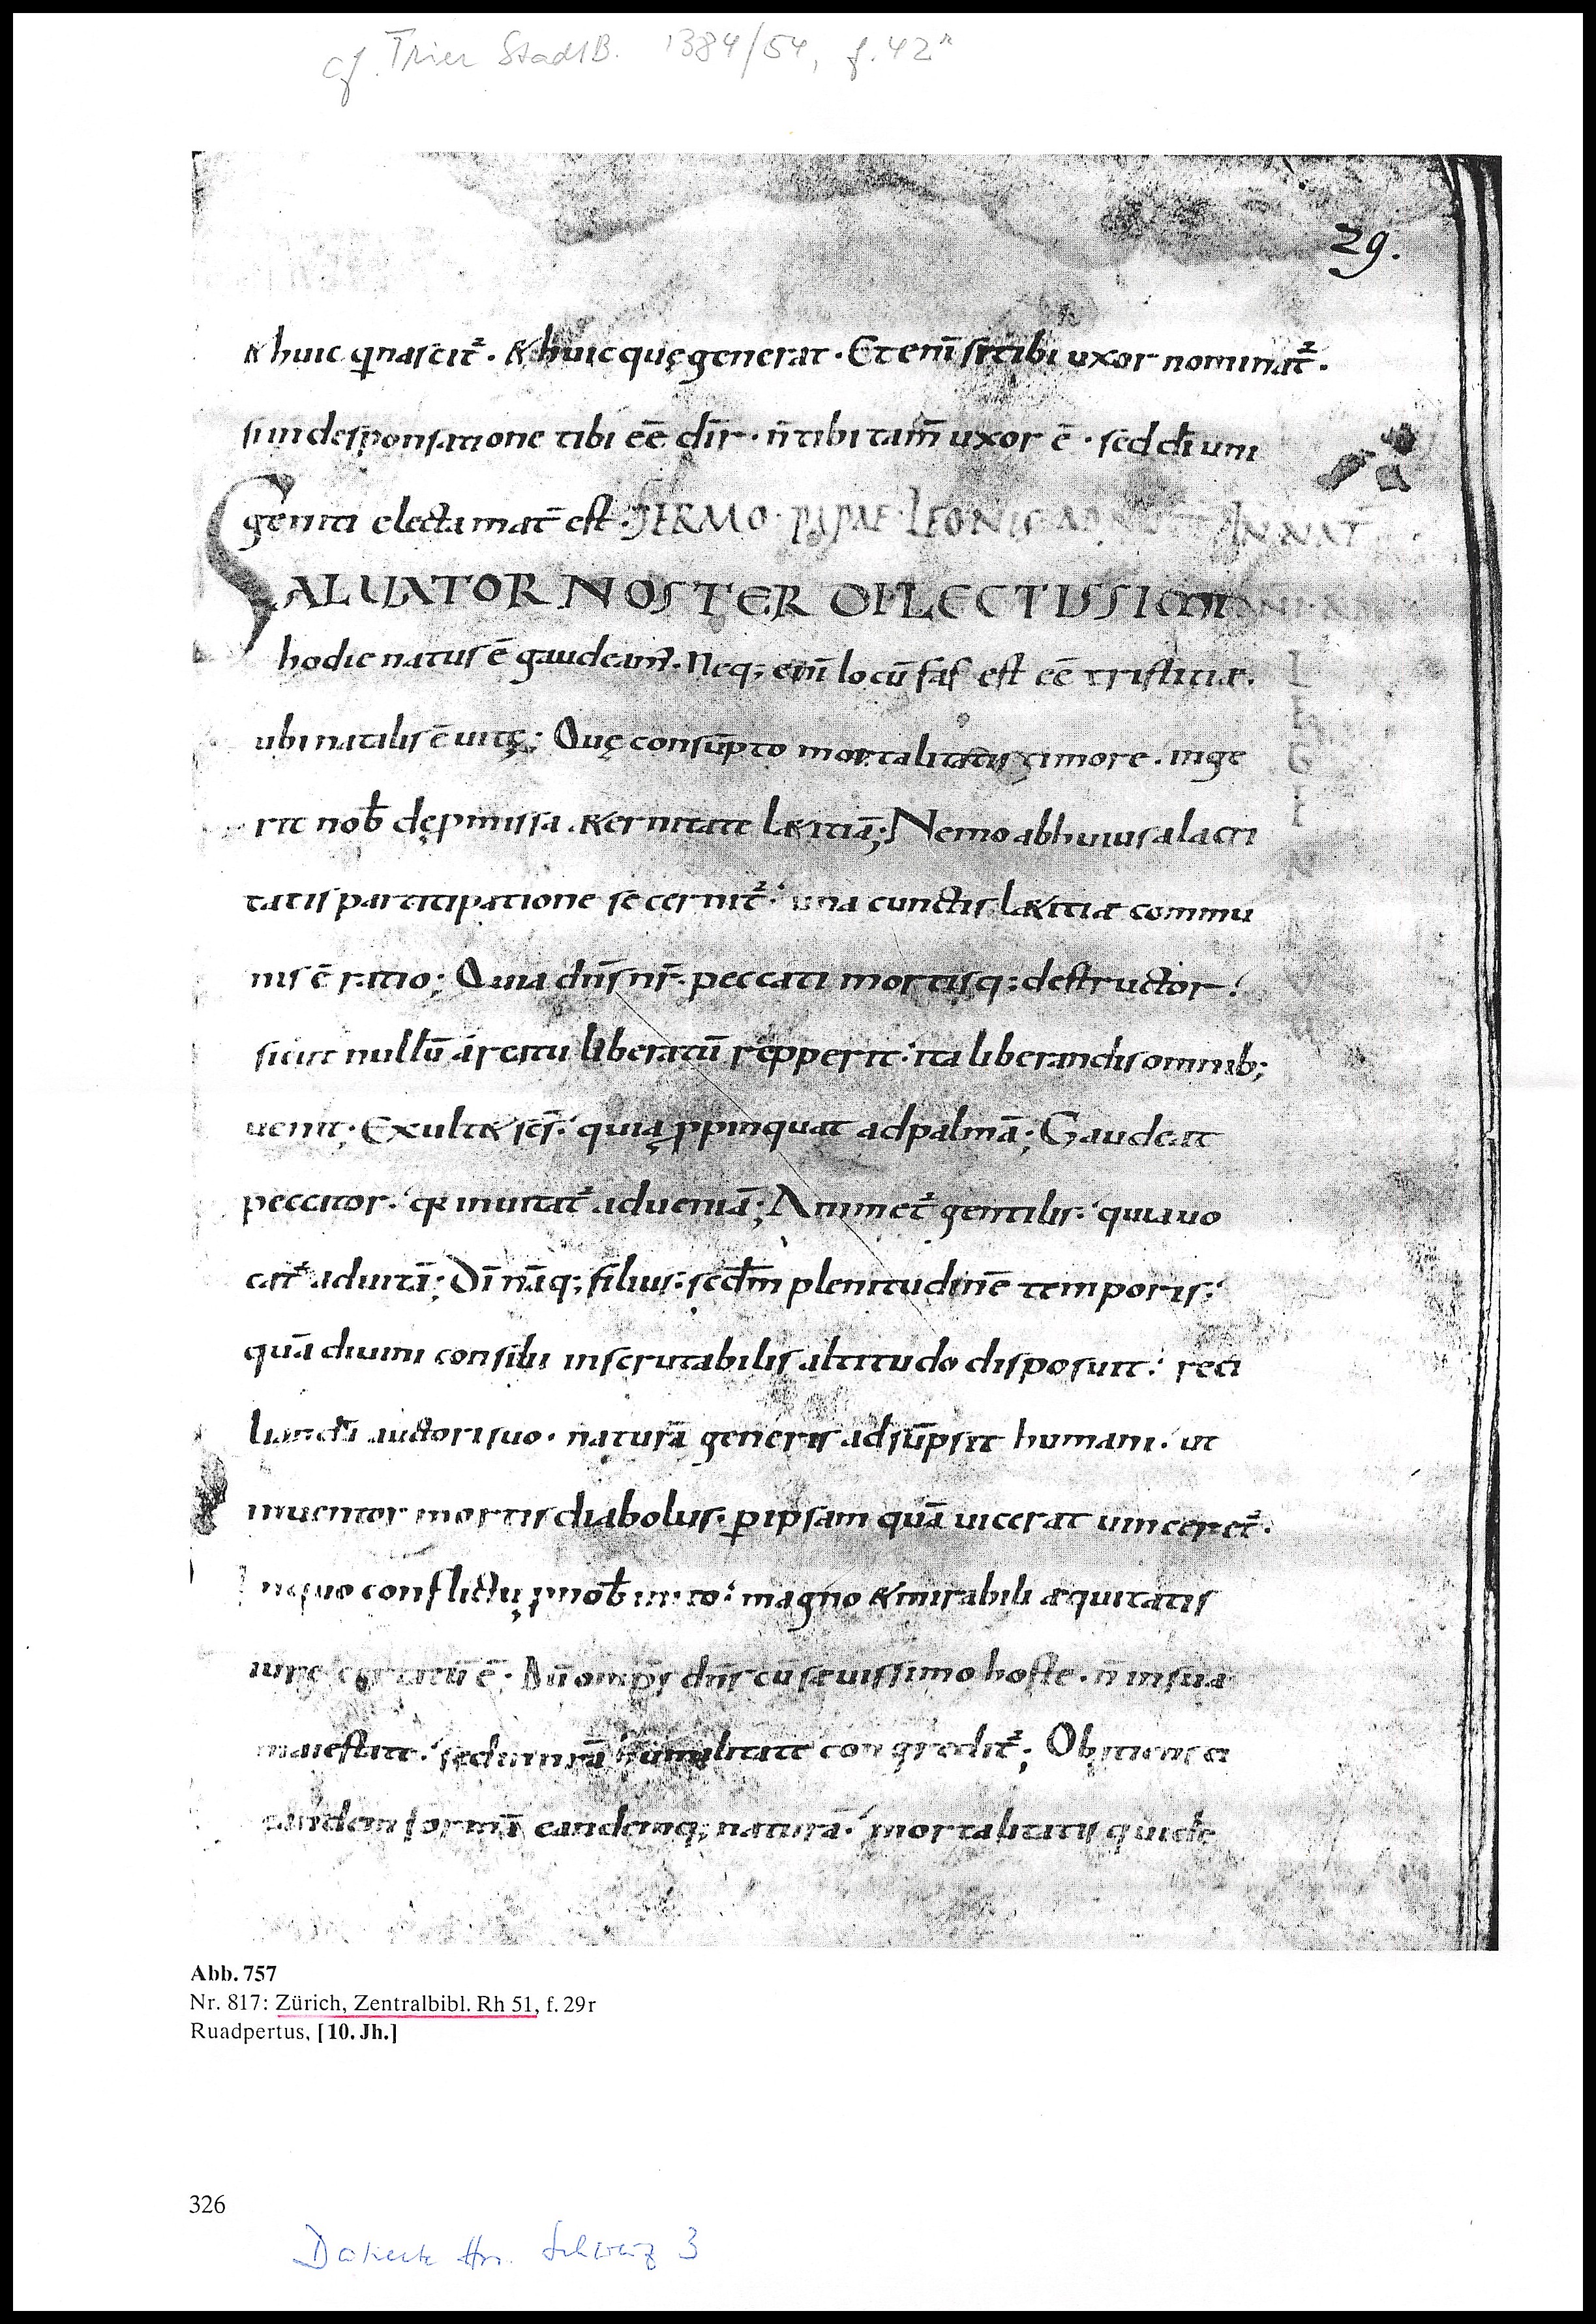 cf. Trier StadtB. 1384/54, f. 42r
29.
& huic q̣ nascit᷑. & huic quę generat. Et enī si tibi uxor nominat᷑.
si in desponsatione tibi eē dr̄. n̄ tibi tam̄ uxor ē. sed dī uni
geniti electa mat̄ est. SERMO PAPAE LEONIS IN NAT̄
SALUATOR NOSTER DILECTISSIMI
hodie natus ē gaudeam᷒. Neq; enī locū fas est eē tristitiæ.
ubi natalis ē uitę; Quę consūpto mortalitatis timore. inge
rit nob̄ dę p̱missa &ernitate l&itiā; Nemo ab huius alacri
tatis participatione secernit᷑. una cunctis l&itiæ commu
nis ē ratio; Quia dn̄s nr̄. peccati mortisq; destructor.
sicut nullū a reatu liberatū repperit. ita liberandis omnib;
uenit; Exult& sc̄s. quia p̱pinquat ad palmā; Gaudeat
peccator. q̣ inuitat᷑ ad ueniā; Animet᷑ gentilis. quia uo
cat᷑ ad uitā; Dī nāq; filius. secdm̄ plenitudinē temporis.
quā diuini consilii inscrutabilis altitudo disposuit. reci
liandā auctori suo. naturā generis adsūpsit humani. ut
inuentor mortis diabolus. ꝑ ipsam quā uicerat uinceret᷑.
In quo conflictu p̱ nob̄ inito. magno & mirabili æquitatis
iure certatū ē. Dū omp̄s dn̄s cū sæuissimo hoste. n̄ in sua
maiestate. sed in nr̄a humilitate congredit᷑; Obiciens ei
eandem formā eandemq; naturā. mortalitatis quidē
L
E
G
E
N
Abb. 757
Nr. 817: Zürich, Zentralbibl. Rh 51, f. 29r
Ruadpertus, [10. Jh.]
326
Datierte Hss. Schweiz 3